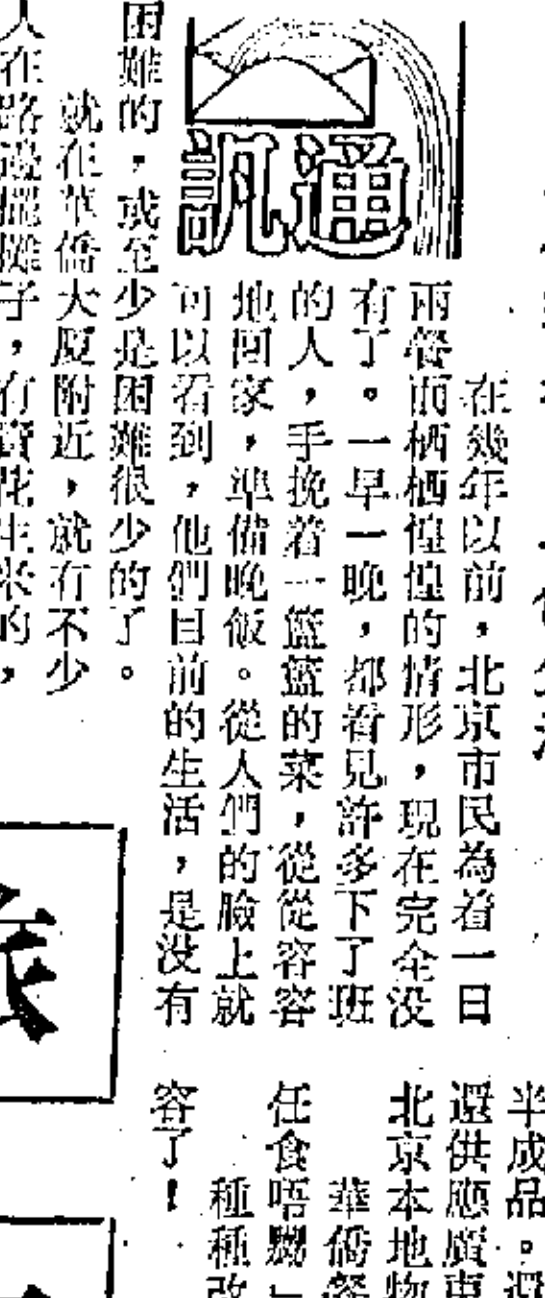 通訊
在幾年以前，北京市民為着一日
兩餐而栖栖惶惶的情形，現在完全没
有了。一早一晚，都看見許多下了班
的人，手挽着一籃籃的菜，從從容容
地回家，準備晚飯。從人們的臉上就
可以看到，他們目前的生活，是没有
困難的，或至少是困難很少的了。
就在華僑大厦附近，就有不少
人在路邊擺攤子，有賣花生米的，
半成品。還
還供應廣東
北京本地物
華僑餐
任食唔嬲」
種種改
容了！